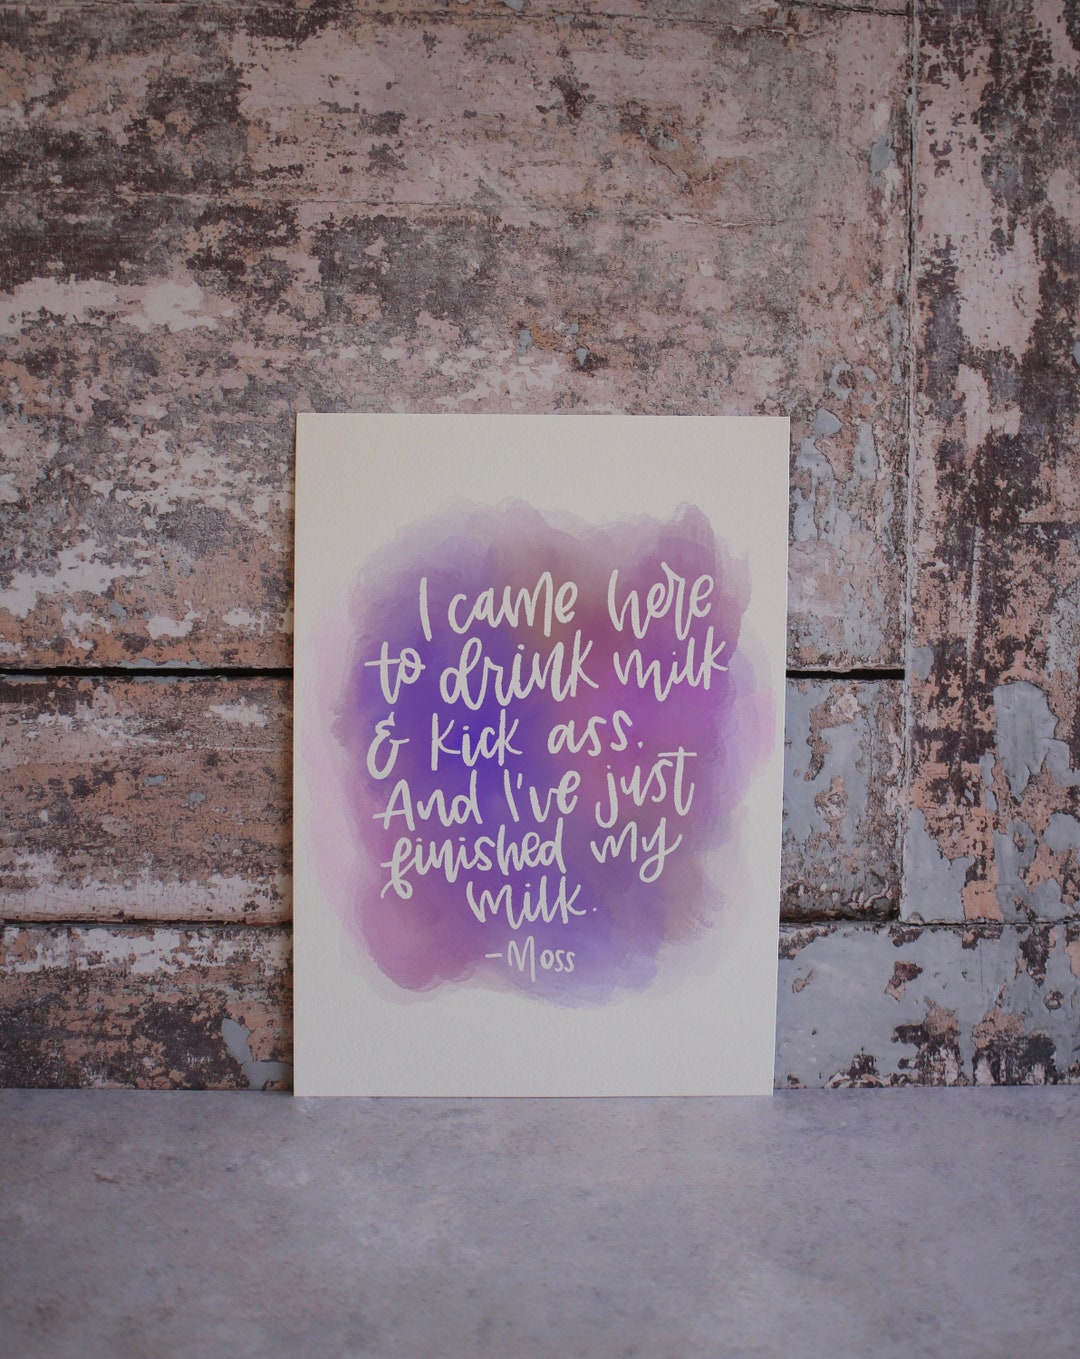 I came here
to drink milk
& kick ass.
And I've just
finished my
milk.
-Moss